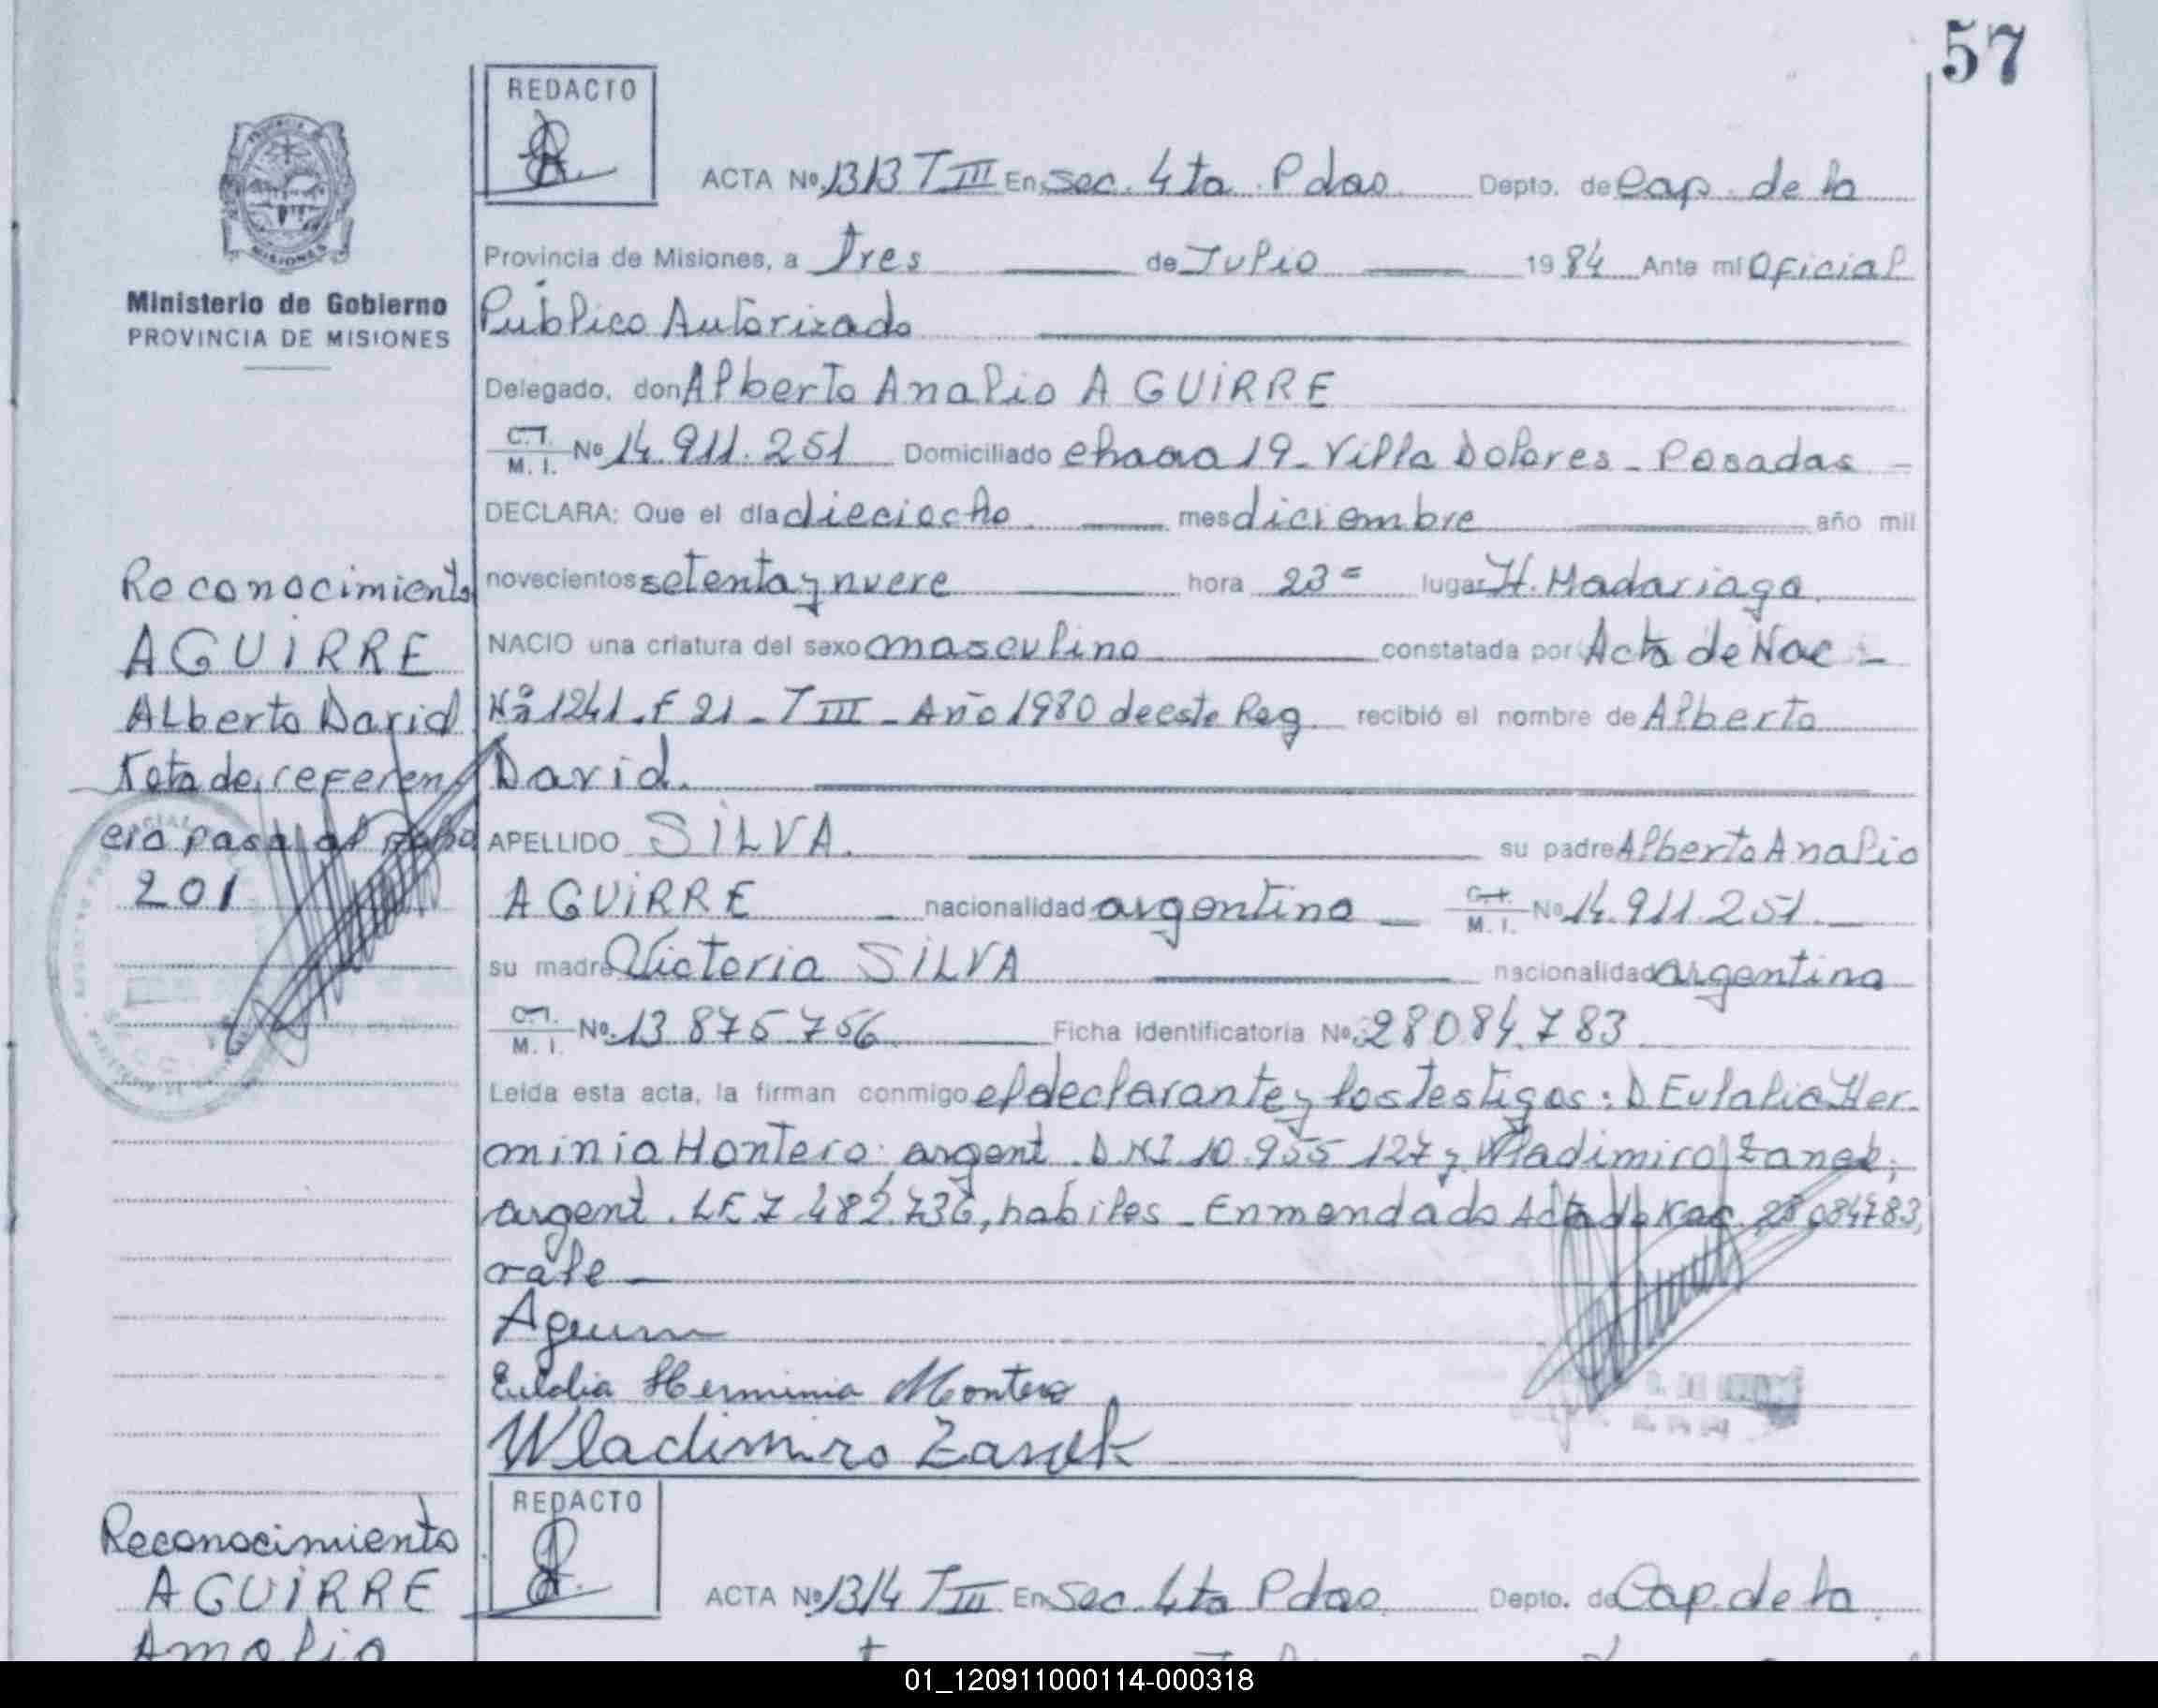 57
REDACTO
ACTA Nº 1313 T III En sec. 4ta Pdas. Depto. de Cap. de la
Provincia de Misiones, a tres de Julio 1984 Ante mi Oficial
Público Autorizado
Delegado, don Alberto Analio AGUIRRE
C.I. M. I. Nº 14.911.251 Domiciliado chacra 19 - Villa Dolores - Posadas -
DECLARA: Que el día dieciocho mes diciembre año mil
novecientos setenta y nueve hora 23= lugar H. Madariaga.
NACIO una criatura del sexo masculino constatada por Acta de Nac -
Nº 1241 - F 21 - T III - Año 1980 de este Reg. recibió el nombre de Alberto
David.
APELLIDO SILVA. su padre Alberto Analio
AGUIRRE - nacionalidad argentino - C.I. M. I. Nº 14.911.251 -
su madre Victoria SILVA nacionalidad argentina
C.I. M. I. Nº 13.875.756 Ficha Identificatoria Nº 28084.783
Leída esta acta, la firman conmigo el declarante y los testigos: D. Eulalia Her-
minia Montero: argent. DNI 10.955.127 y Wladimiro Zanek,
argent. LE 7.482.736, habiles - Enmendado Acta de Nac. 28084783,
vale -
Aguirre
Eulalia Herminia Montero
Wladimiro Zanek
Ministerio de Gobierno
PROVINCIA DE MISIONES
Reconocimiento
AGUIRRE
Alberto David
Nota de referen
cia pasa al folio
201
REDACTO
ACTA Nº 1314 T III En Sec. 4ta Pdas. Depto. de Cap. de la
Reconocimiento
AGUIRRE
Amalia
01_120911000114-000318